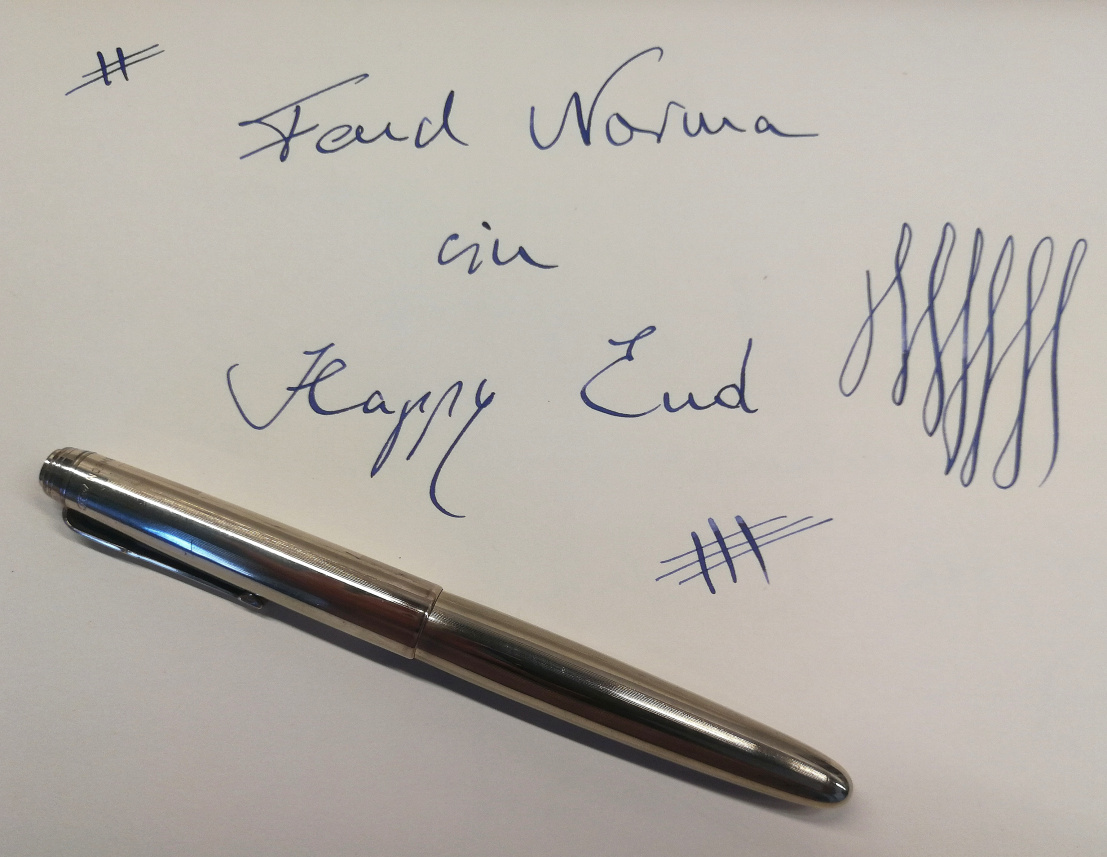 Fand Norma
ein
Happy End